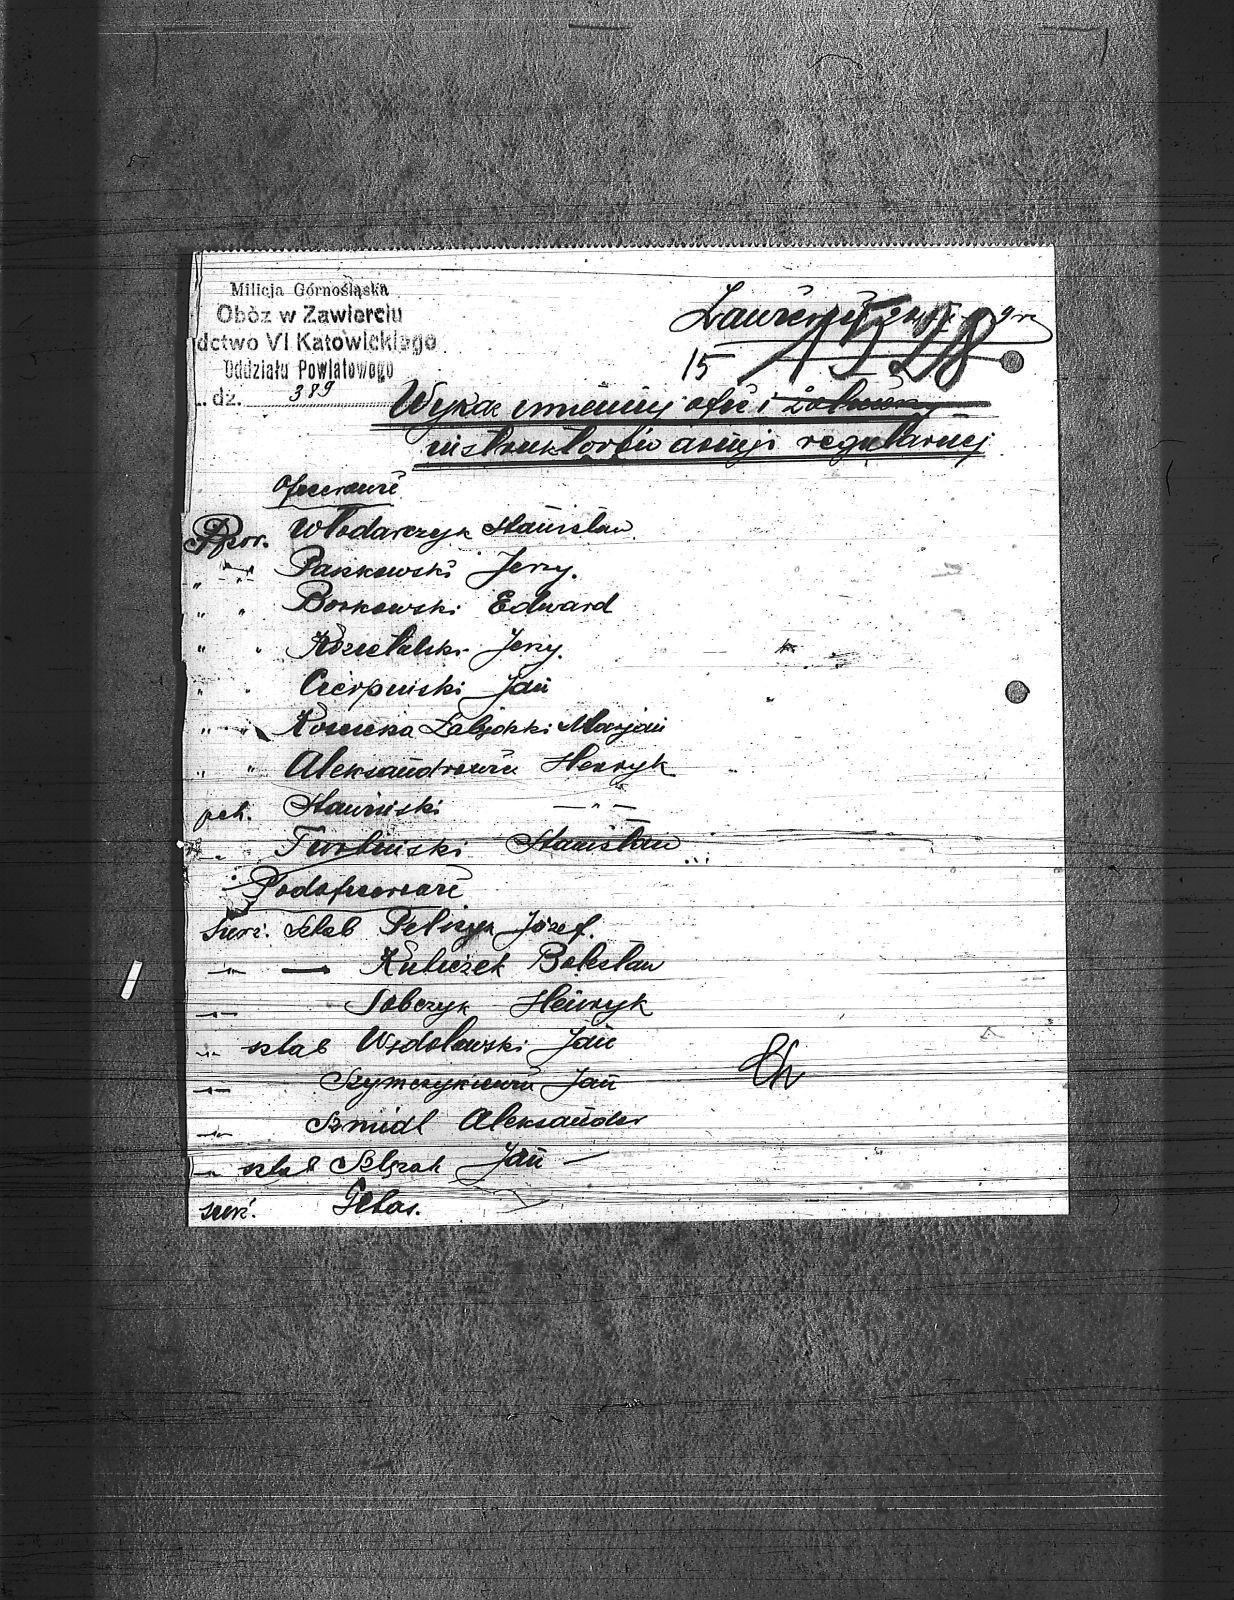 Milicja Górnośląska
Obóz w Zawierciu
dctwo VI Katowickiego
Oddziału Powiatowego
.. dz. 389
15 1528
Wykaz imienny ofic i
instruktorów armji regularnej
Oficerowie
Ppor. Włodarczyk Stanisław
" " Pankowski Jerzy.
" " Borkowski Edward
" " Jerzy.
" " Cierpiński Jan
" " Marjan
" " Aleksandrowicz Henryk
pch. Sławiński — " —
" Twoliński Stanisław
Podoficerowie
sierż. sztab Józef.
— " — Kuliczek Bolesław
— " — Sobczyk Henryk
— " — sztab Wądołowski Jan
— " — Szymczykiewicz Jan
— " — Szmidt Aleksander
— " — sztab Jan —
sierż.